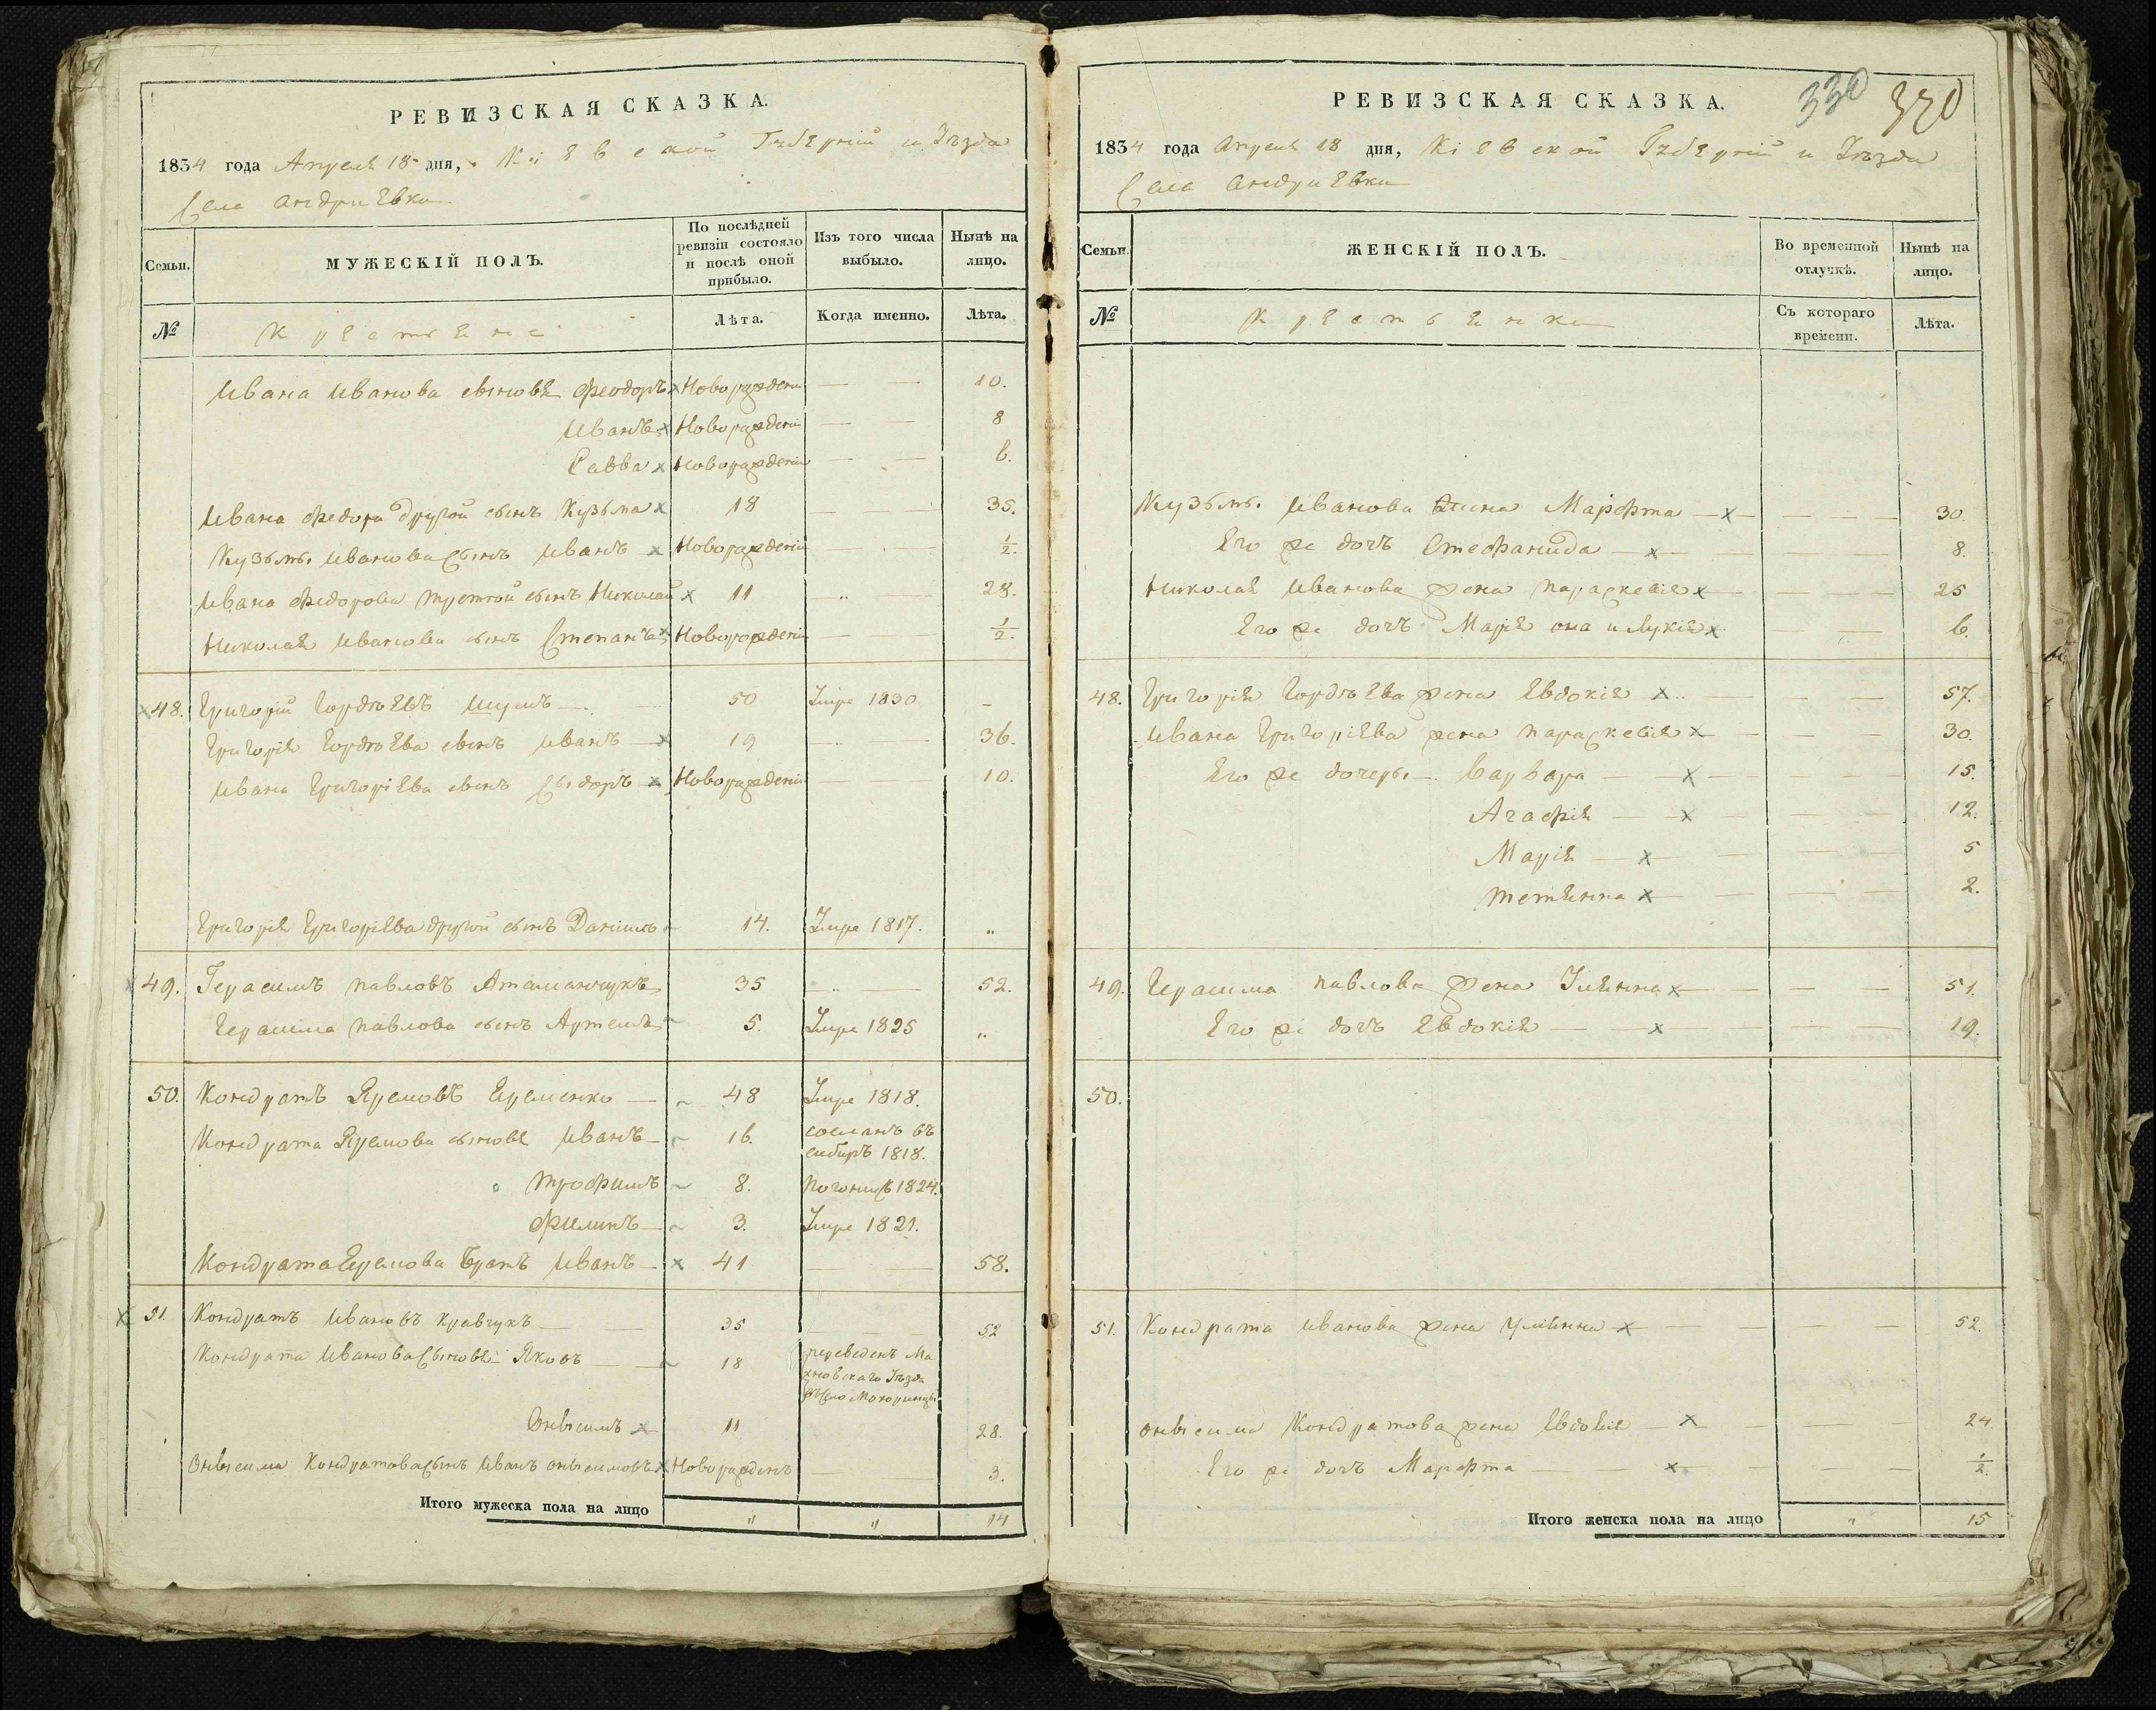 РЕВИЗСКАЯ СКАЗКА.
1834 года Апреля 18 дня, Кіевской Губерніи и Уѣзда
Села Андриевки
Семьи.
МУЖЕСКІЙ ПОЛЪ.
По послѣдней ревизіи состояло и послѣ оной прибыло.
Изъ того числа выбыло.
Нынѣ на лицо.
№
Крестьяне
Лѣта.
Когда именно.
Лѣта.
Ивана Иванова сыновья Феодоръ х Новорожденъ — — 10.
Иванъ х Новорожденъ — — 8
Савва х Новорожденъ — — 6.
Ивана Федора другой сынъ Кузьма х 18 — — 35.
Кузьмы Иванова сынъ Иванъ х Новорожденъ — — 1/2.
Ивана Федорова третой сынъ Николай х 11 — 28.
Николая Иванова сынъ Степанъ х Новорожденъ — — 1/2.
х 48. Григорій Гордѣевъ Шумъ — 50 Умре 1830 —
Григорія Гордѣева сынъ Иванъ — х 19 — 36.
Ивана Григоріева сынъ Сыдоръ х Новорожденъ — — 10.
Григорія Григоріева другой сынъ Даніилъ 14. Умре 1817. „
х 49. Герасимъ Павловъ Атаманчукъ 35 — 52.
Герасима Павлова сынъ Артемъ 5. Умре 1825 „
50. Кондратъ Яремовъ Еременко — ~ 48 Умре 1818.
Кондрата Яремова сыновья Иванъ — ~ 16. сосланъ въ
сибиръ 1818.
Трофимъ ~ 8. 1824.
Филипъ — ~ 3. Умре 1821.
Кондрата Еремова братъ Иванъ — х 41 — — 58.
х 51. Кондратъ Ивановъ Кравчукъ — — 35 — — 52
Кондрата Иванова сыновья Яковъ — ~ 18 переведенъ Ма
хновскаго Уѣзда
въ село Махаринцы
Онысимъ х 11 28.
Онысима Кондратова сынъ Иванъ Онысимовъ х Новорожденъ — — 3.
Итого мужеска пола на лицо „ „ 14
330 370
РЕВИЗСКАЯ СКАЗКА.
1834 года Апреля 18 дня, Кіевской Губерніи и Уѣзда
Села Андриевки
Семьи.
ЖЕНСКІЙ ПОЛЪ.
Во временной отлучкѣ.
Нынѣ на лицо.
№
Крестьянки
Съ котораго времени.
Лѣта.
Кузьмы Иванова жена Марфта — х — 30.
Его же дочь Стефанида — х — 8.
Николая Иванова жена Параскевія х — 25
Его же дочъ Марія она и Лукія х — 6.
48. Григорія Гордѣева жена Евдокія х — 57.
Ивана Григоріева жена Параскевія х — 30.
Его же дочеры — Варвара — х — 15.
Агафія — х — 12.
Марія — х — 5
Тетянна х — 2.
49. Герасима Павлова жена Улянна х — 51.
Его же дочъ Евдокія — х — 19.
50.
51. Кондрата Иванова жена Улянна х — 52.
Онысима Кондратова жена Евдокія — х — 24.
Его же дочъ Марфта — х — 1/2.
Итого женска пола на лицо „ 15